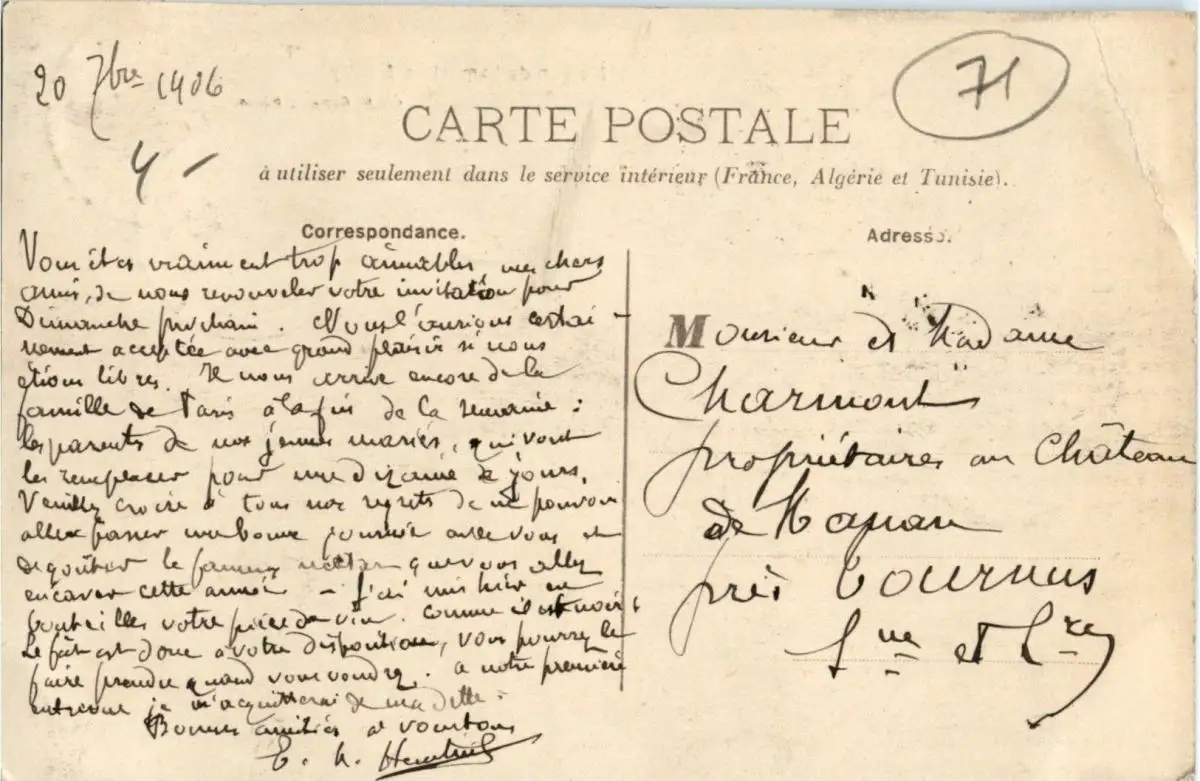 20 7bre 1906
71
4 -
CARTE POSTALE
à utiliser seulement dans le service intérieur (France, Algérie et Tunisie).
Correspondance.
Vous êtes vraiment trop aimables, mes chers
amis, de nous renouveler votre invitation pour
Dimanche prochain. Nous l'aurions certai-
nement acceptée avec grand plaisir si nous
étions libres. Il nous arrive encore de la
famille de Paris à la fin de la semaine :
les parents de nos jeunes mariés, qui vont
les remplacer pour une dizaine de jours.
Veuillez croire à tous nos regrets de ne pouvoir
aller passer une bonne journée avec vous et
degoûter le fameux nectar que vous allez
encaver cette année - J'ai mis hier en
bouteilles votre pièce de vin. comme il est noir !
Le fût est donc à votre disposition, vous pourrez le
faire prendre quand vous voudrez. a notre première
entrevue je m'acquitterai de ma dette.
Bonnes amitiés à vous tous
Adresse.
Monsieur et Madame
Charmont
propriétaires au Château
de
près Tournus
Sne et Lre